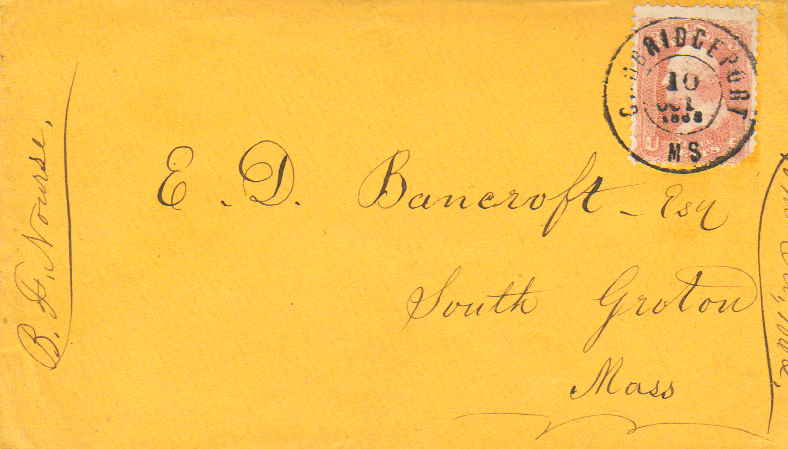 CAMBRIDGEPORT
10
OCT
MS
E. D. Bancroft - Esq
South Groton
Mass
B. F. Nourse,